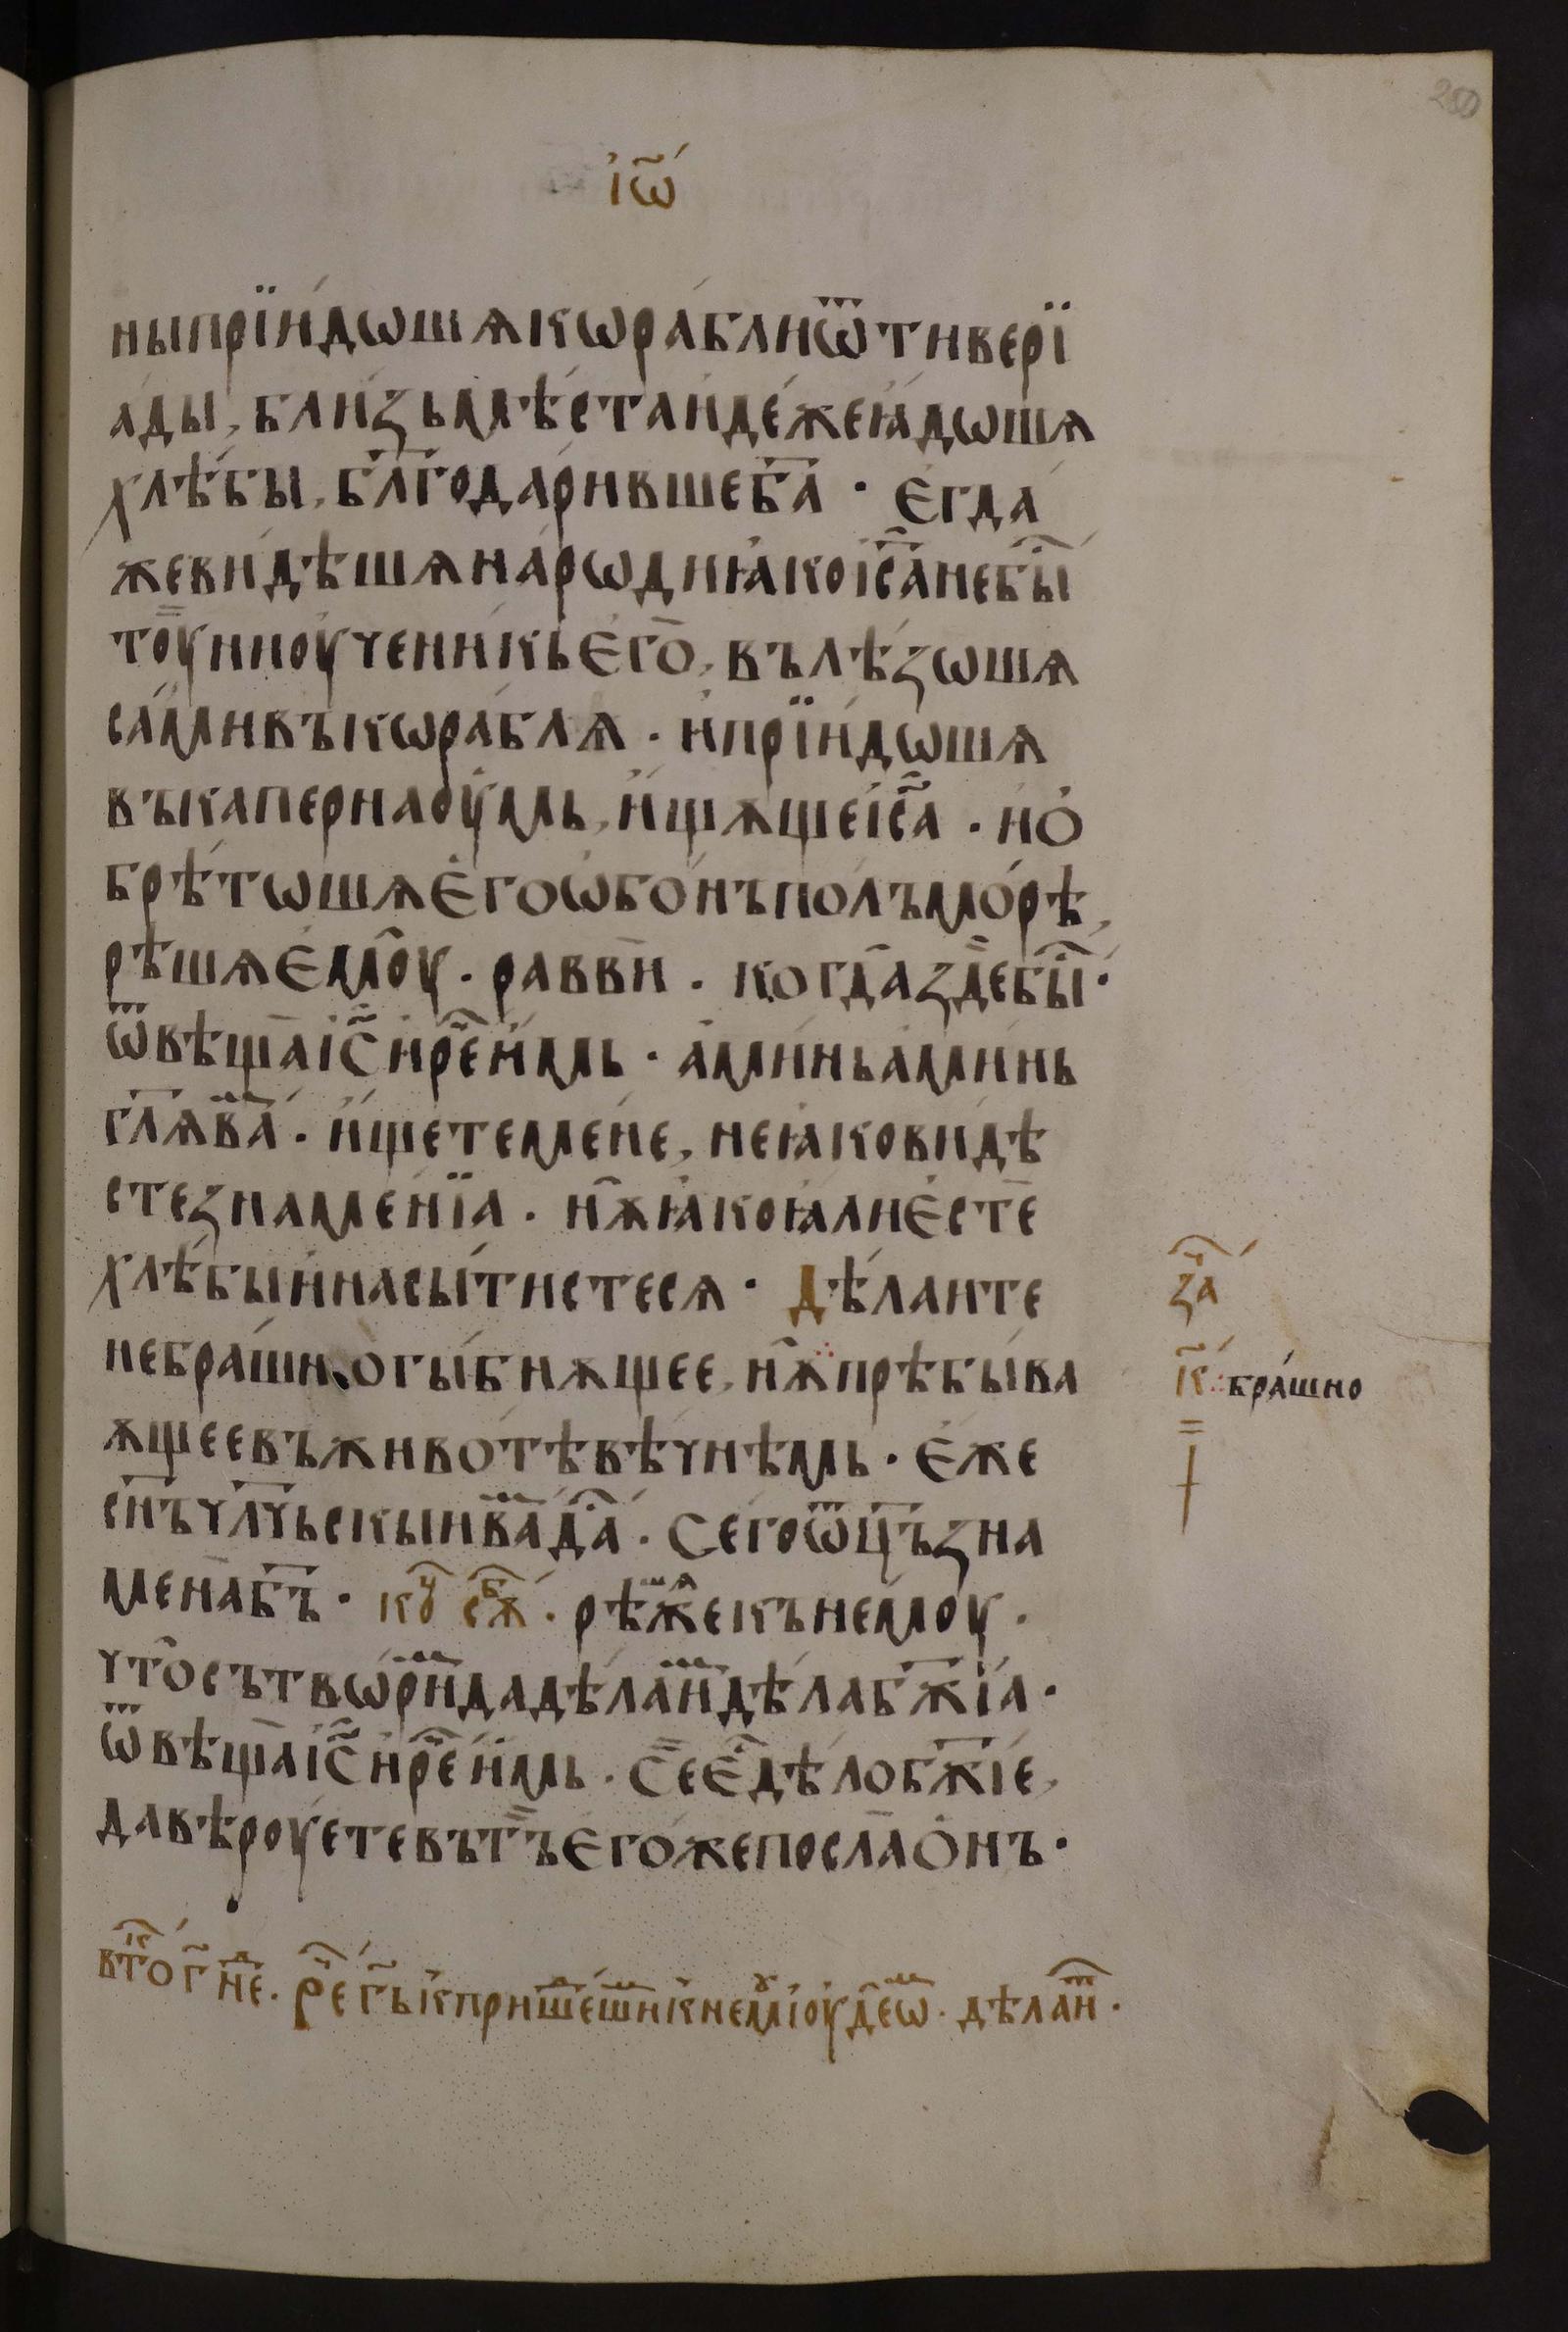 250
і҆ѡ҃
ныпрїи́дѡшѫкѡра́блиѿтиверї
а́ды, бли́зьмѣ́стаиде́жеꙗ҆́дѡшѫ
хлѣ́бы, бл҃года́рившеба҃ · є҆гда
жеви́дѣшѫна́рѡдиꙗ҆́коіс҃анебы̑
тоу̀ниоу҆чени́кьє҆го̀, вълѣ́зѡшѫ
са́мивъкѡра́блѧ · и҆прїи́дѡшѫ
въкаперна́оу҆мь, и҆́щѫщеіс҃а · ио҆
брѣ́тѡшѫє҆гоѡ҆бо́нъполъмо́рѣ,
рѣ́шѫє҆моу̑ · равви̑ · когда̀здебы̑ ·
ѿвѣща̀іс҃и҆рече́и҆мь · а҆ми́ньа҆ми́нь
гл҃ѧва́ · и҆́щетемене, неꙗ҆́кови́дѣ
стезна́менїа · нѫ̑ꙗ҆́коꙗ҆́лиє҆стѐ
хлѣ́быи҆насы́тистесѧ · дѣ́лаите
небра́шноги́бнѫщее, нѫ̑прѣбы́ва
ѫщеевъживо́тѣвѣ́чнѣмь · є҆́же
сн҃ъчл҃чьскыива́да́ · Сегоѿц҃ъзна
мена̀б҃ъ · коу̑ сѫб · рѣшѫ́жекънемоу ·
что̑сътвѡ́римдадѣ́лаемдѣ́лабж҃їа ·
ѿвѣща̀іс҃и҆рече́и҆мь · Сеє҆́дѣ́лобж҃їе,
давѣ́роуетевътъ̀є҆го́жепосла̀ѻ҆нъ ·
за
к҃ · бра́шно
вто́к г҃ не́д · ре́ г҃ь к прише́дшик немꙋ іоудеѡм · дѣ́лаит ·